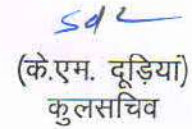 sd/-
(के.एम. दूड़िया)
कुलसचिव